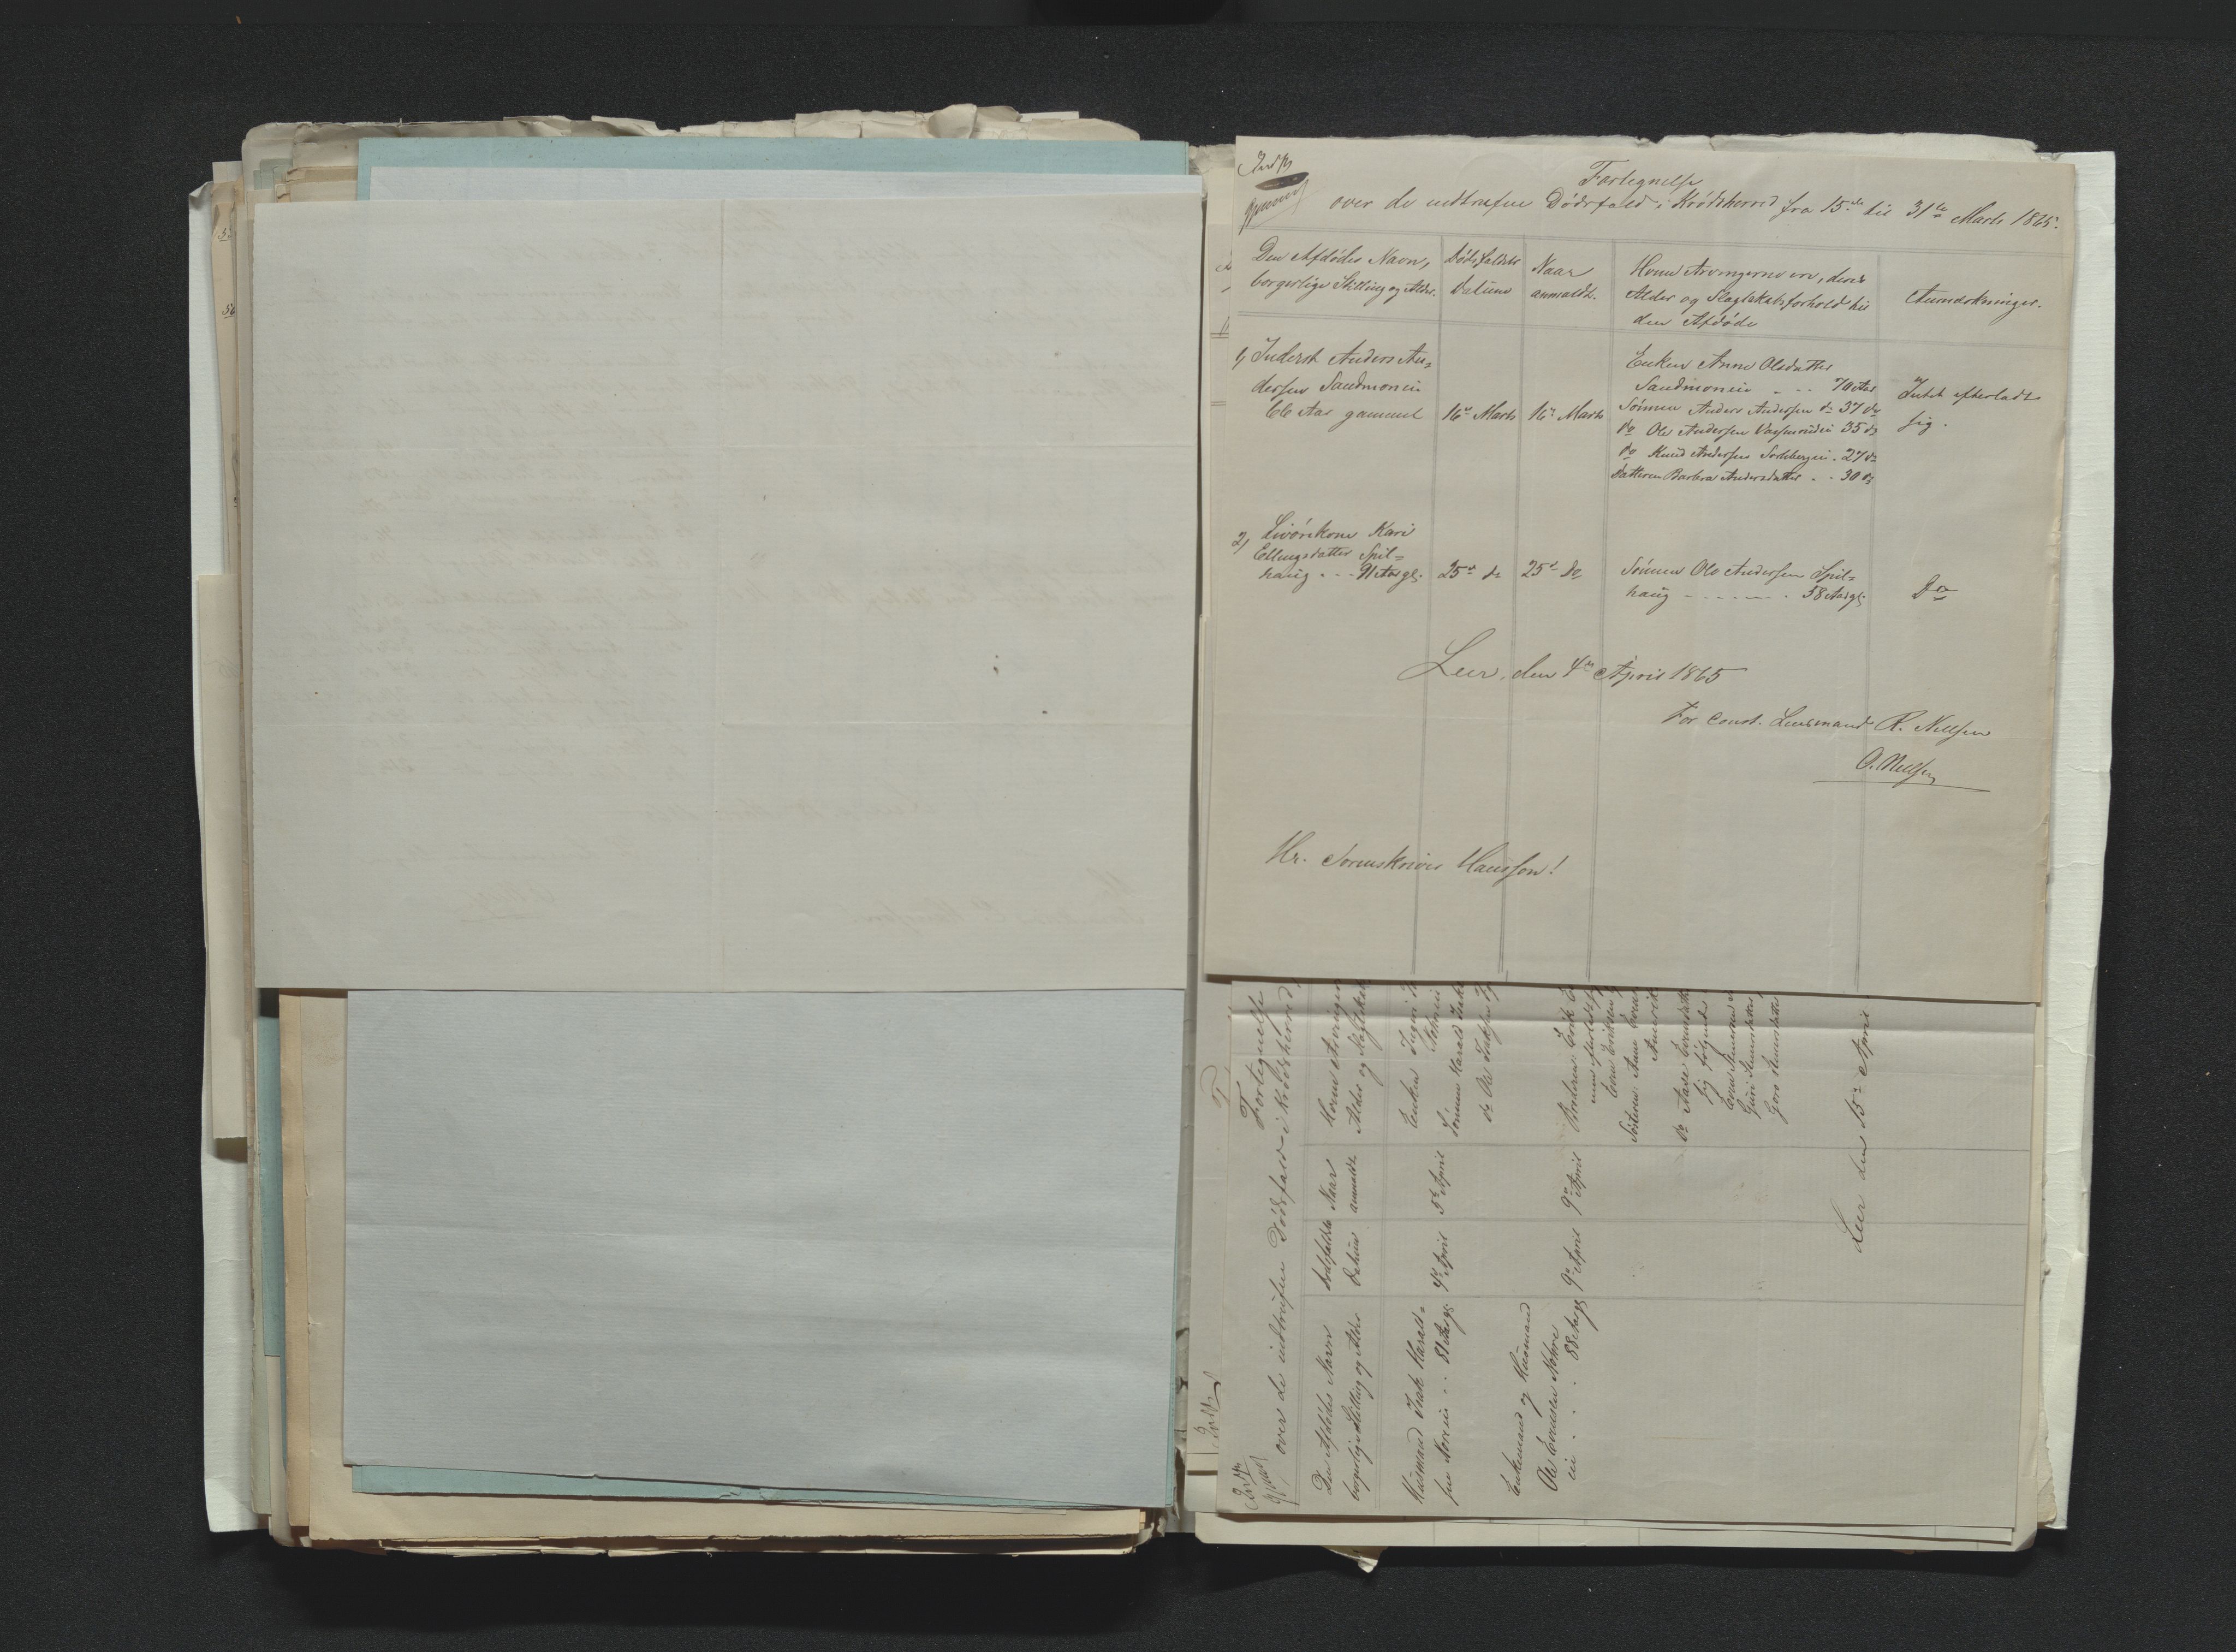 Indf.
Fortegnelse
over de indtrufne Dødsfald i Krødsherred fra 15de til 31te Marts 1865.
Den Afdødes Navn, borgerlige Stilling og Alder.
Dødsfaldets Datum
Naar anmeldt.
Hvem Arvingerne ere, deres
Alder og Slægtskabsforhold til
den Afdøde
Anmærkninger.
1) Inderst Anders An=
dersen Sandmoneie
66 Aar gammel
16de Marts
16de Marts
Enken Anne Olsdatter
Sandmoneie - - - 70 Aar
Sønnen Anders Andersen do 37 do
do Ole Andersen 35 do
do Knud Andersen 27 do
Datteren Barbra Andersdatter - - 30 do
Intet efterladt
sig.
2) Livørekone Kari
Ellingsdatter Spil=
haug - - - 91 Aar gl.
25de do
25de do
Sønnen Ole Andersen Spil=
haug - - - - - - 58 Aar gl.
Do
Leer, den 4de April 1865
For const. Lensmand R. Nillsen
O. Nillsen
Hr. Sorenskriver Hansson!
Fortegnelse
over de indtrufne Dødsfald i Krødsherred
Den Afdødes Navn
borgerlige Stilling og Alder
Dødsfaldets
Datum
Naar
anmeldt.
Hvem Arvingern
Alder og Slægtskab
Husmand Isak Harald=
sen Moreie - - 81 Aar gl.
4de April
5te April
Enken
Sønnen Harald Isaks
do Ole Isaksen
Enkemand og Husmand
Ole Evensen
eie - - - 88 Aar gl.
9de April
9de April
Broderen Erik E
Even Eriksen
Søsteren Anne Evens
Amerik
do Aase Evensdatter
sig følgende
Even Gunnersen
Guri Gunnersdatter
Goro Gunnersdatter
Leer den 15de April